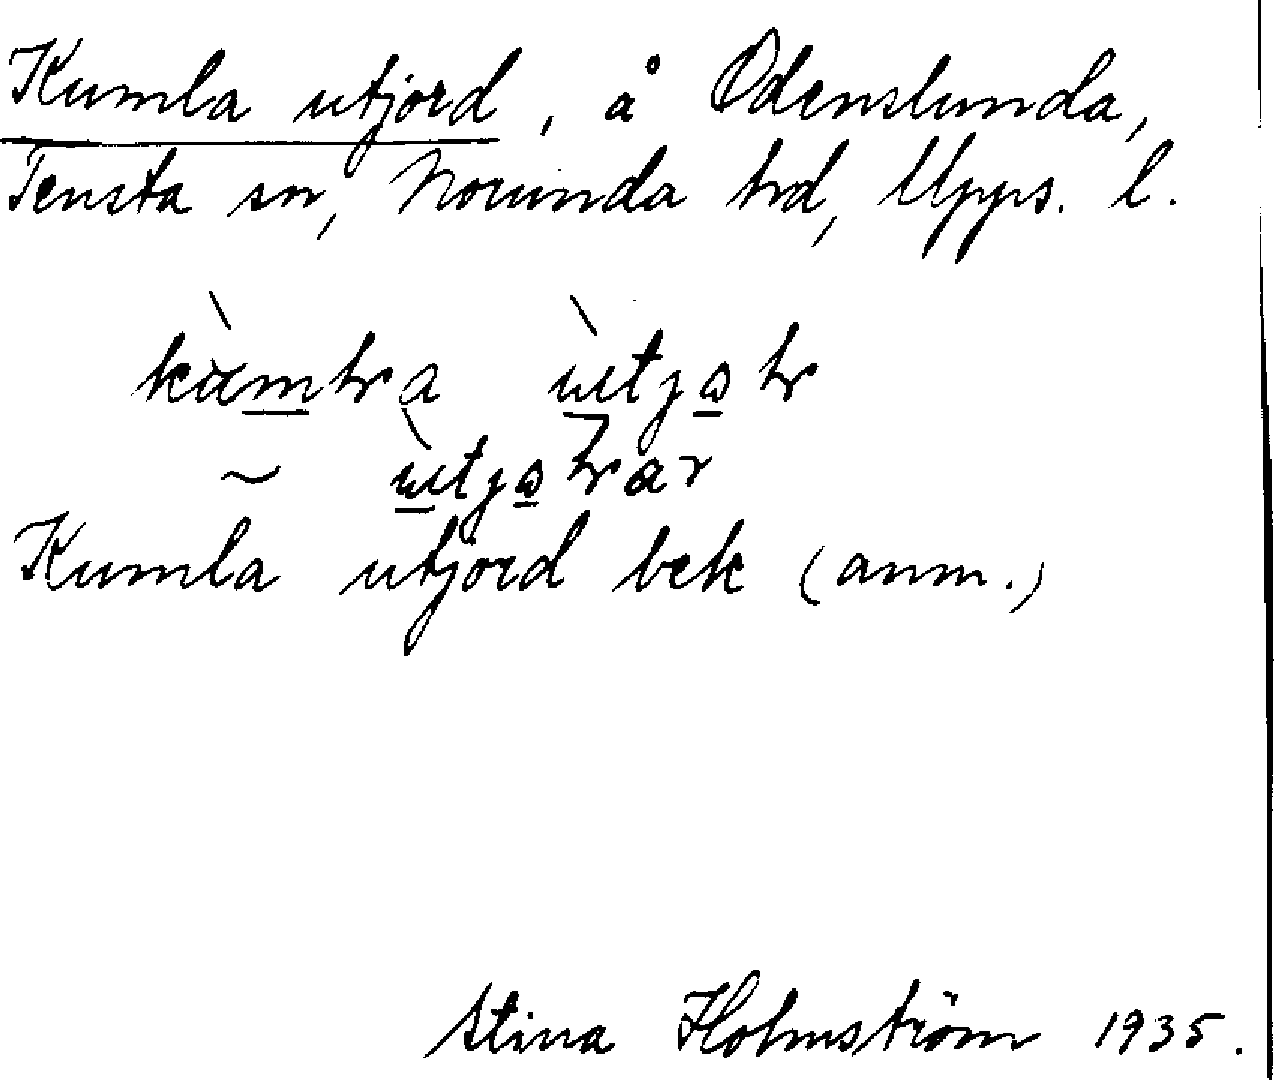 Kumla utjord, å Odenslunda,
Tensta sn, Norunda hrd, Upps. l.
~
Kumla utjord bek (anm.)
Stina Holmström 1935.